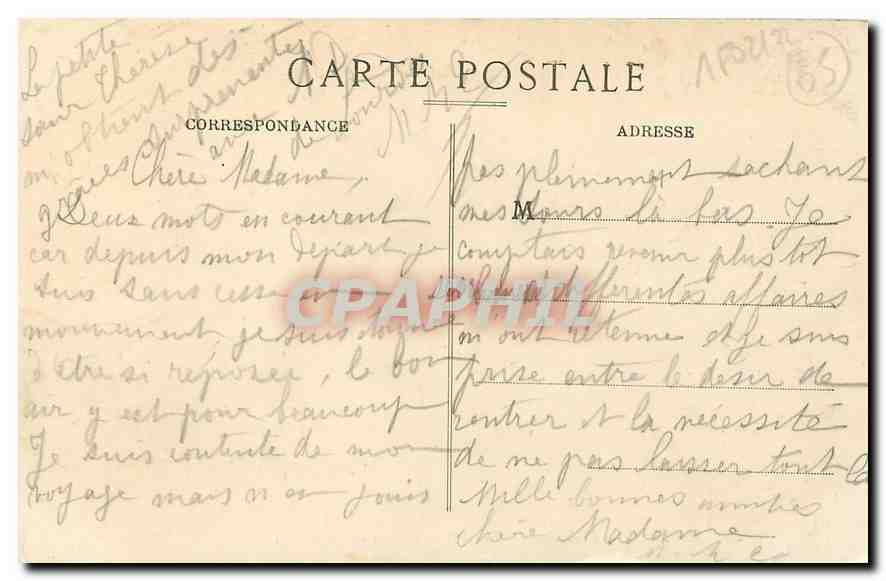 CARTE POSTALE
CORRESPONDANCE
ADRESSE
La petite
sœur Thérèse
m'obtient des
grâces surprenantes
avec N
de
Chère Madame,
Deux mots en courant
car depuis mon départ je
suis sans cesse en
mouvement, je suis
d'être si reposée, le bon
air y est pour beaucoup
Je suis contente de mon
voyage mais n'en jouis
pas pleinement sachant
M
mes sœurs là bas. Je
comptais revenir plus tôt
différentes affaires
m'ont retenue et je suis
prise entre le désir de
rentrer et la nécessité
de ne pas laisser tout
Mille bonnes amitiés
chère Madame
CPAPHIL